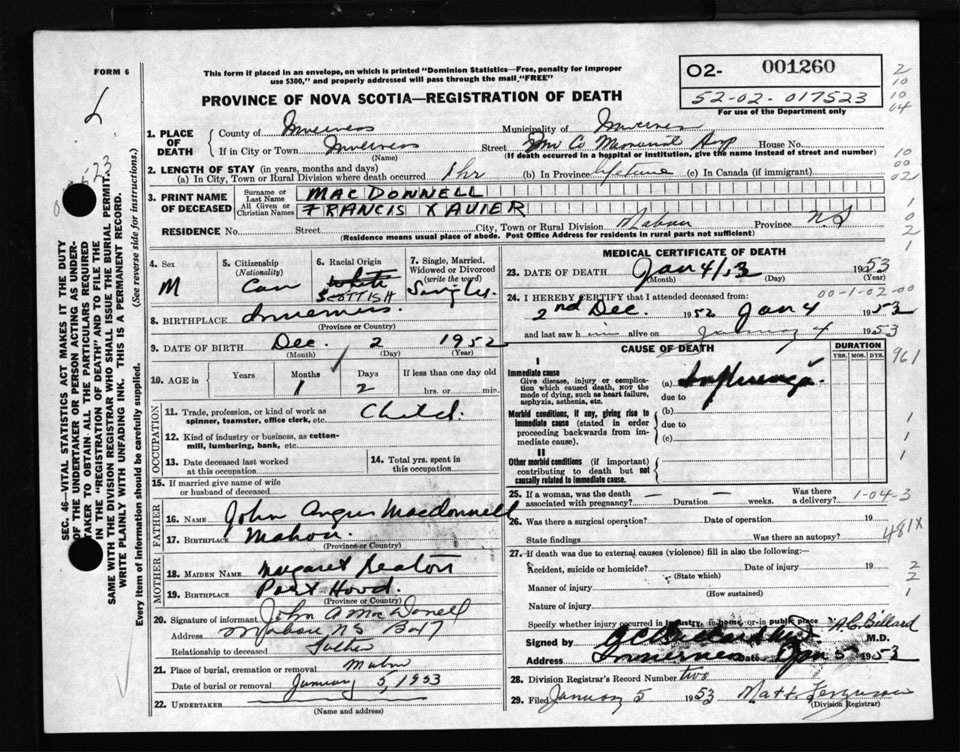 FORM 6
This form if placed in an envelope, on which is printed "Dominion Statistics—Free, penalty for improper
use $300," and properly addressed will pass through the mail "FREE"
PROVINCE OF NOVA SCOTIA—REGISTRATION OF DEATH
02- 001260
52-02-017523
For use of the Department only
2
10
10
64
10
00
02
1
0
2
1
L
623
SEC. 46—VITAL STATISTICS ACT MAKES IT THE DUTY
OF THE UNDERTAKER OR PERSON ACTING AS UNDER-
TAKER TO OBTAIN ALL THE PARTICULARS REQUIRED
IN THE "REGISTRATION OF DEATH" AND TO FILE THE
SAME WITH THE DIVISION REGISTRAR WHO SHALL ISSUE THE BURIAL PERMIT.
WRITE PLAINLY WITH UNFADING INK. THIS IS A PERMANENT RECORD.
Every item of information should be carefully supplied. (See reverse side for instructions.)
1. PLACE OF DEATH
County of Inverness Municipality of Inverness
If in City or Town Inverness Street Inv Co Memorial Hosp House No.
(Name) (If death occurred in a hospital or institution, give the name instead of street and number)
2. LENGTH OF STAY (in years, months and days)
(a) In City, Town or Rural Division where death occurred 1 hr (b) In Province lifetime (c) In Canada (if immigrant)
3. PRINT NAME OF DECEASED
Surname or Last Name MAC DONNELL
All Given or Christian Names FRANCIS XAVIER
RESIDENCE No. Street City, Town or Rural Division Mabou Province N S
(Residence means usual place of abode. Post Office Address for residents in rural parts not sufficient)
4. Sex M
5. Citizenship (Nationality) Can
6. Racial Origin White SCOTTISH
7. Single, Married, Widowed or Divorced (write the word) Single.
8. BIRTHPLACE Inverness.
(Province or Country)
9. DATE OF BIRTH Dec. 2 1952
(Month) (Day) (Year)
10. AGE in Years Months 1 Days 2 If less than one day old
hrs. or min.
OCCUPATION
11. Trade, profession, or kind of work as
spinner, teamster, office clerk, etc. Child.
12. Kind of industry or business, as cotton-
mill, lumbering, bank, etc.
13. Date deceased last worked
at this occupation
14. Total yrs. spent in
this occupation
15. If married give name of wife
or husband of deceased
FATHER
16. NAME John Angus Macdonnell
17. BIRTHPLACE Mabou.
(Province or Country)
MOTHER
18. MAIDEN NAME Margaret Beaton
19. BIRTHPLACE Port Hood.
(Province or Country)
20. Signature of informant John A MacDonell
Address Mabou NS
Relationship to deceased Father
21. Place of burial, cremation or removal Mabou
Date of burial or removal January 5, 1953
22. UNDERTAKER
(Name and address)
MEDICAL CERTIFICATE OF DEATH
23. DATE OF DEATH Jan 4/53 1953
(Month) (Day)
00-1-02-00
24. I HEREBY CERTIFY that I attended deceased from:
2nd Dec. 1952 Jan 4 1953
and last saw him alive on January 4 1953
CAUSE OF DEATH DURATION
YRS. MOS. DYS.
961
I
Immediate cause
Give disease, injury or complica-
tion which caused death, not the
mode of dying, such as heart failure,
asphyxia, asthenia, etc.
(a) Influenza.
due to
Morbid conditions, if any, giving rise to
immediate cause (stated in order
proceeding backwards from im-
mediate cause).
(b)
due to
(c)
1
1
1
II
Other morbid conditions (if important)
contributing to death but not
causally related to immediate cause.
25. If a woman, was the death
associated with pregnancy? — — Duration — weeks. Was there
a delivery? 1-04-3
26. Was there a surgical operation? Date of operation 19
State findings Was there an autopsy?
481X
27. If death was due to external causes (violence) fill in also the following:—
Accident, suicide or homicide? Date of injury 19
(State which)
Manner of injury
(How sustained)
Nature of injury
2
2
1
Specify whether injury occurred in industry, in home, or in public place
A.C. Billard
Signed by M.D.
Address Inverness Date Jan 5 1953
28. Division Registrar's Record Number two
29. Filed January 5 1953 Matt. Ferguson
(Division Registrar)